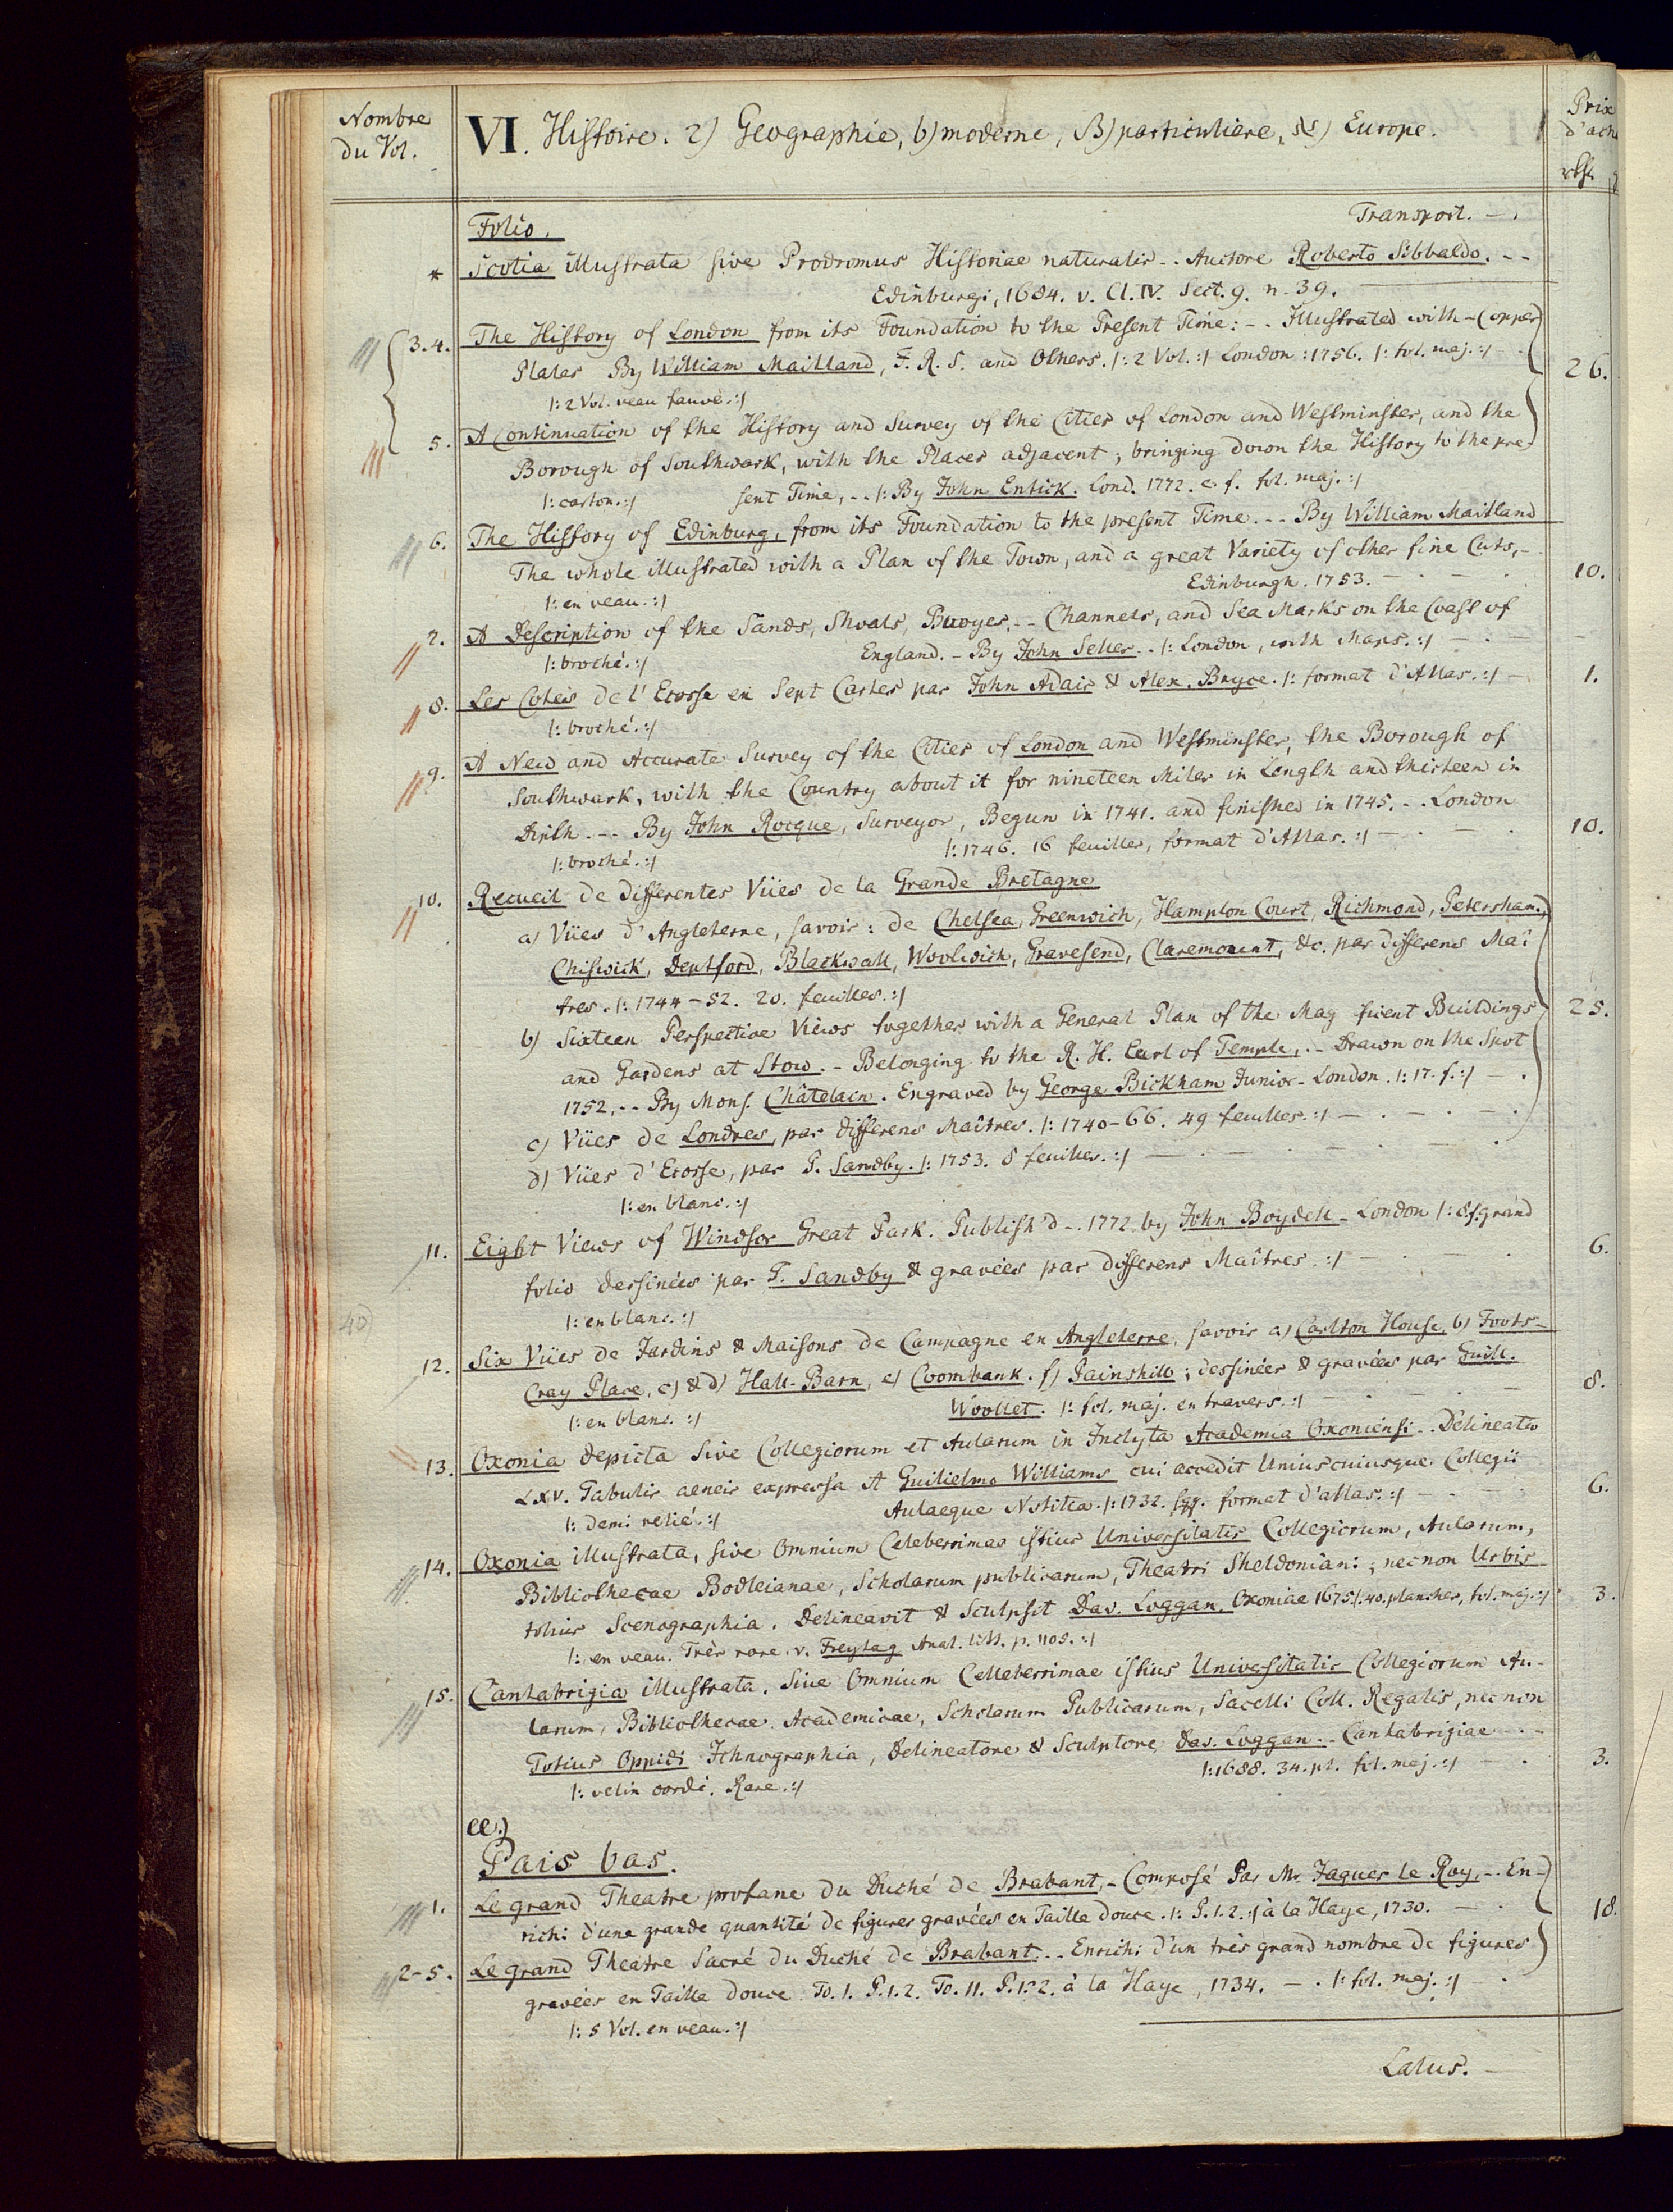 Nombre
du Vol.
VI. Histoire. 2) Geographie, b) moderne, B) particuliere, Europe.
Prix
Folio.
Transport. — .
* Scotia illustrata sive Prodromus Historiae naturalis - . Auctore Roberto Sibbaldo. - -
Edinburgi, 1684. v. Cl. IV. Sect. 9. n. 39.
3.4. The History of London from its Foundation to the Present Time: - . Illustrated with - Copper
Plates By William Maitland, F. R. S. and Others. /: 2 Vol. :/ London : 1756. /: fol. maj. :/ - . 26.
/: 2 Vol. veau fauve. :/
5. A Continuation of the History and Survey of the Cities of London and Westminster, and the
Borough of Southwark, with the Places adjacent; bringing down the History to the pre-
/: carton. :/ sent Time, - . /: By John Entick. Lond. 1772. c. f. fol. maj. :/
6. The History of Edinburg, from its Foundation to the present Time. - - By William Maitland
The whole illustrated with a Plan of the Town, and a great Variety of other fine Cuts, -
/: en veau. :/ Edinburgh. 1753. — . — . 10.
7. A Description of the Sands, Shoals, Buoyes, - - Channels, and Sea Marks on the Coast of
/: broché. :/ England. - By John Seller - . /: London, with Maps. :/ — . —
8. Les Cotes de l'Ecosse en Sept Cartes par John Adair & Alex. Bryce. /: format d'Atlas. :/ — 1.
/: broché. :/
9. A New and Accurate Survey of the Cities of London and Westminster, the Borough of
Southwark, with the Country about it for nineteen Miles in Length and thirteen in
Depth. - - By John Rocque, Surveyor, Begun in 1741. and finished in 1745. - . London
/: broché. :/ /: 1746. 16 feuilles, format d'Atlas. :/ — . — . 10.
10. Recueil de differentes Vües de la Grande Bretagne
a) Vües d'Angleterre, savoir: de Chelsea, Greenwich, Hampton Court, Richmond, Petersham,
Chiswick, Deptford, Blackwall, Woolwich, Gravesend, Claremount, &c. par differens Maî
tres. /: 1744 - 52. 20. feuilles. :/
b) Sixteen Perspective Views together with a General Plan of the Mag ficent Buildings 25.
and Gardens at Stow. - Belonging to the R. H. Earl of Temple, . - Drawn on the Spot
1752, - - By Mons. Châtelain. Engraved by George Bickham Junior - London. /: 17. f. :/ — .
c) Vües de Londres, par differens Maîtres. /: 1740 - 66. 49 feuilles. :/ — . — . — .
d) Vües d'Ecosse, par P. Sandby. /: 1753. 8 feuilles. :/ — . — . — . — .
/: en blanc. :/
11. Eight Views of Windsor Great Park. Publish'd - . 1772 by John Boydell - London /: 8. f. grand
folio dessinées par T. Sandby & gravées par differens Maîtres. :/ — . — . 6.
/: en blanc. :/
40)
12. Six Vües de Jardins & Maisons de Campagne en Angleterre, savoir a) Carlton House, b) Foots-
Cray Place, c) & d) Hall-Barn, e) Coombank. f) Painshill; dessinées & gravées par Guill.
/: en blanc. :/ Woollet. /: fol. maj. en travers. :/ — . — . — 8.
13. Oxonia depicta Sive Collegiorum et Aularum in Inclyta Academia Oxoniensi - . Delineatio
LXV. Tabulis aeneis expressa A Guilielmo Williams cui accedit Uniuscuiusque Collegii
/: demi relié. :/ Aulaeque Notitia. /: 1732. sqq. format d'atlas. :/ — . — . 6.
14. Oxonia illustrata, sive Omnium Celeberrimae istius Universitatis Collegiorum, Aularum,
Bibliothecae Bodleianae, Scholarum publicarum, Theatri Sheldoniani; necnon Urbis
totius Scenographia. Delineavit & Sculpsit Dav. Loggan. Oxoniae 1675 /: 40. planches, fol. maj. :/ 3.
/: en veau. Très rare. v. Freytag Anal. litt. p. 1105. :/
15. Cantabrigia illustrata. Sive Omnium Celleberrimae istius Universitatis Collegiorum Au-
larum, Bibliothecae Academicae, Scholarum Publicarum, Sacelli Coll. Regalis, necnon
Totius Oppidi Ichnographia, Delineatore & Sculptore Dav. Loggan. - . Cantabrigiae - . -
/: velin cordé. Rare. :/ /: 1688. 34. pl. fol. maj. :/ — . 3.
ee.)
Pais bas.
1. Le grand Theatre profane du Duché de Brabant, - Composé Par Mr. Jaques le Roy, - . En-
richi d'une grande quantité de figures gravées en Taille douce. /: P. 1. 2. :/ à la Haye, 1730. — . 18.
2-5. Le grand Theatre Sacré du Duché de Brabant. - . Enrichi d'un très grand nombre de figures
gravées en Taille douce To. I. P. 1. 2. To. II. P. 1. 2. à la Haye, 1734. — . /: fol. maj. :/ — .
/: 5 Vol. en veau. :/
Latus. —